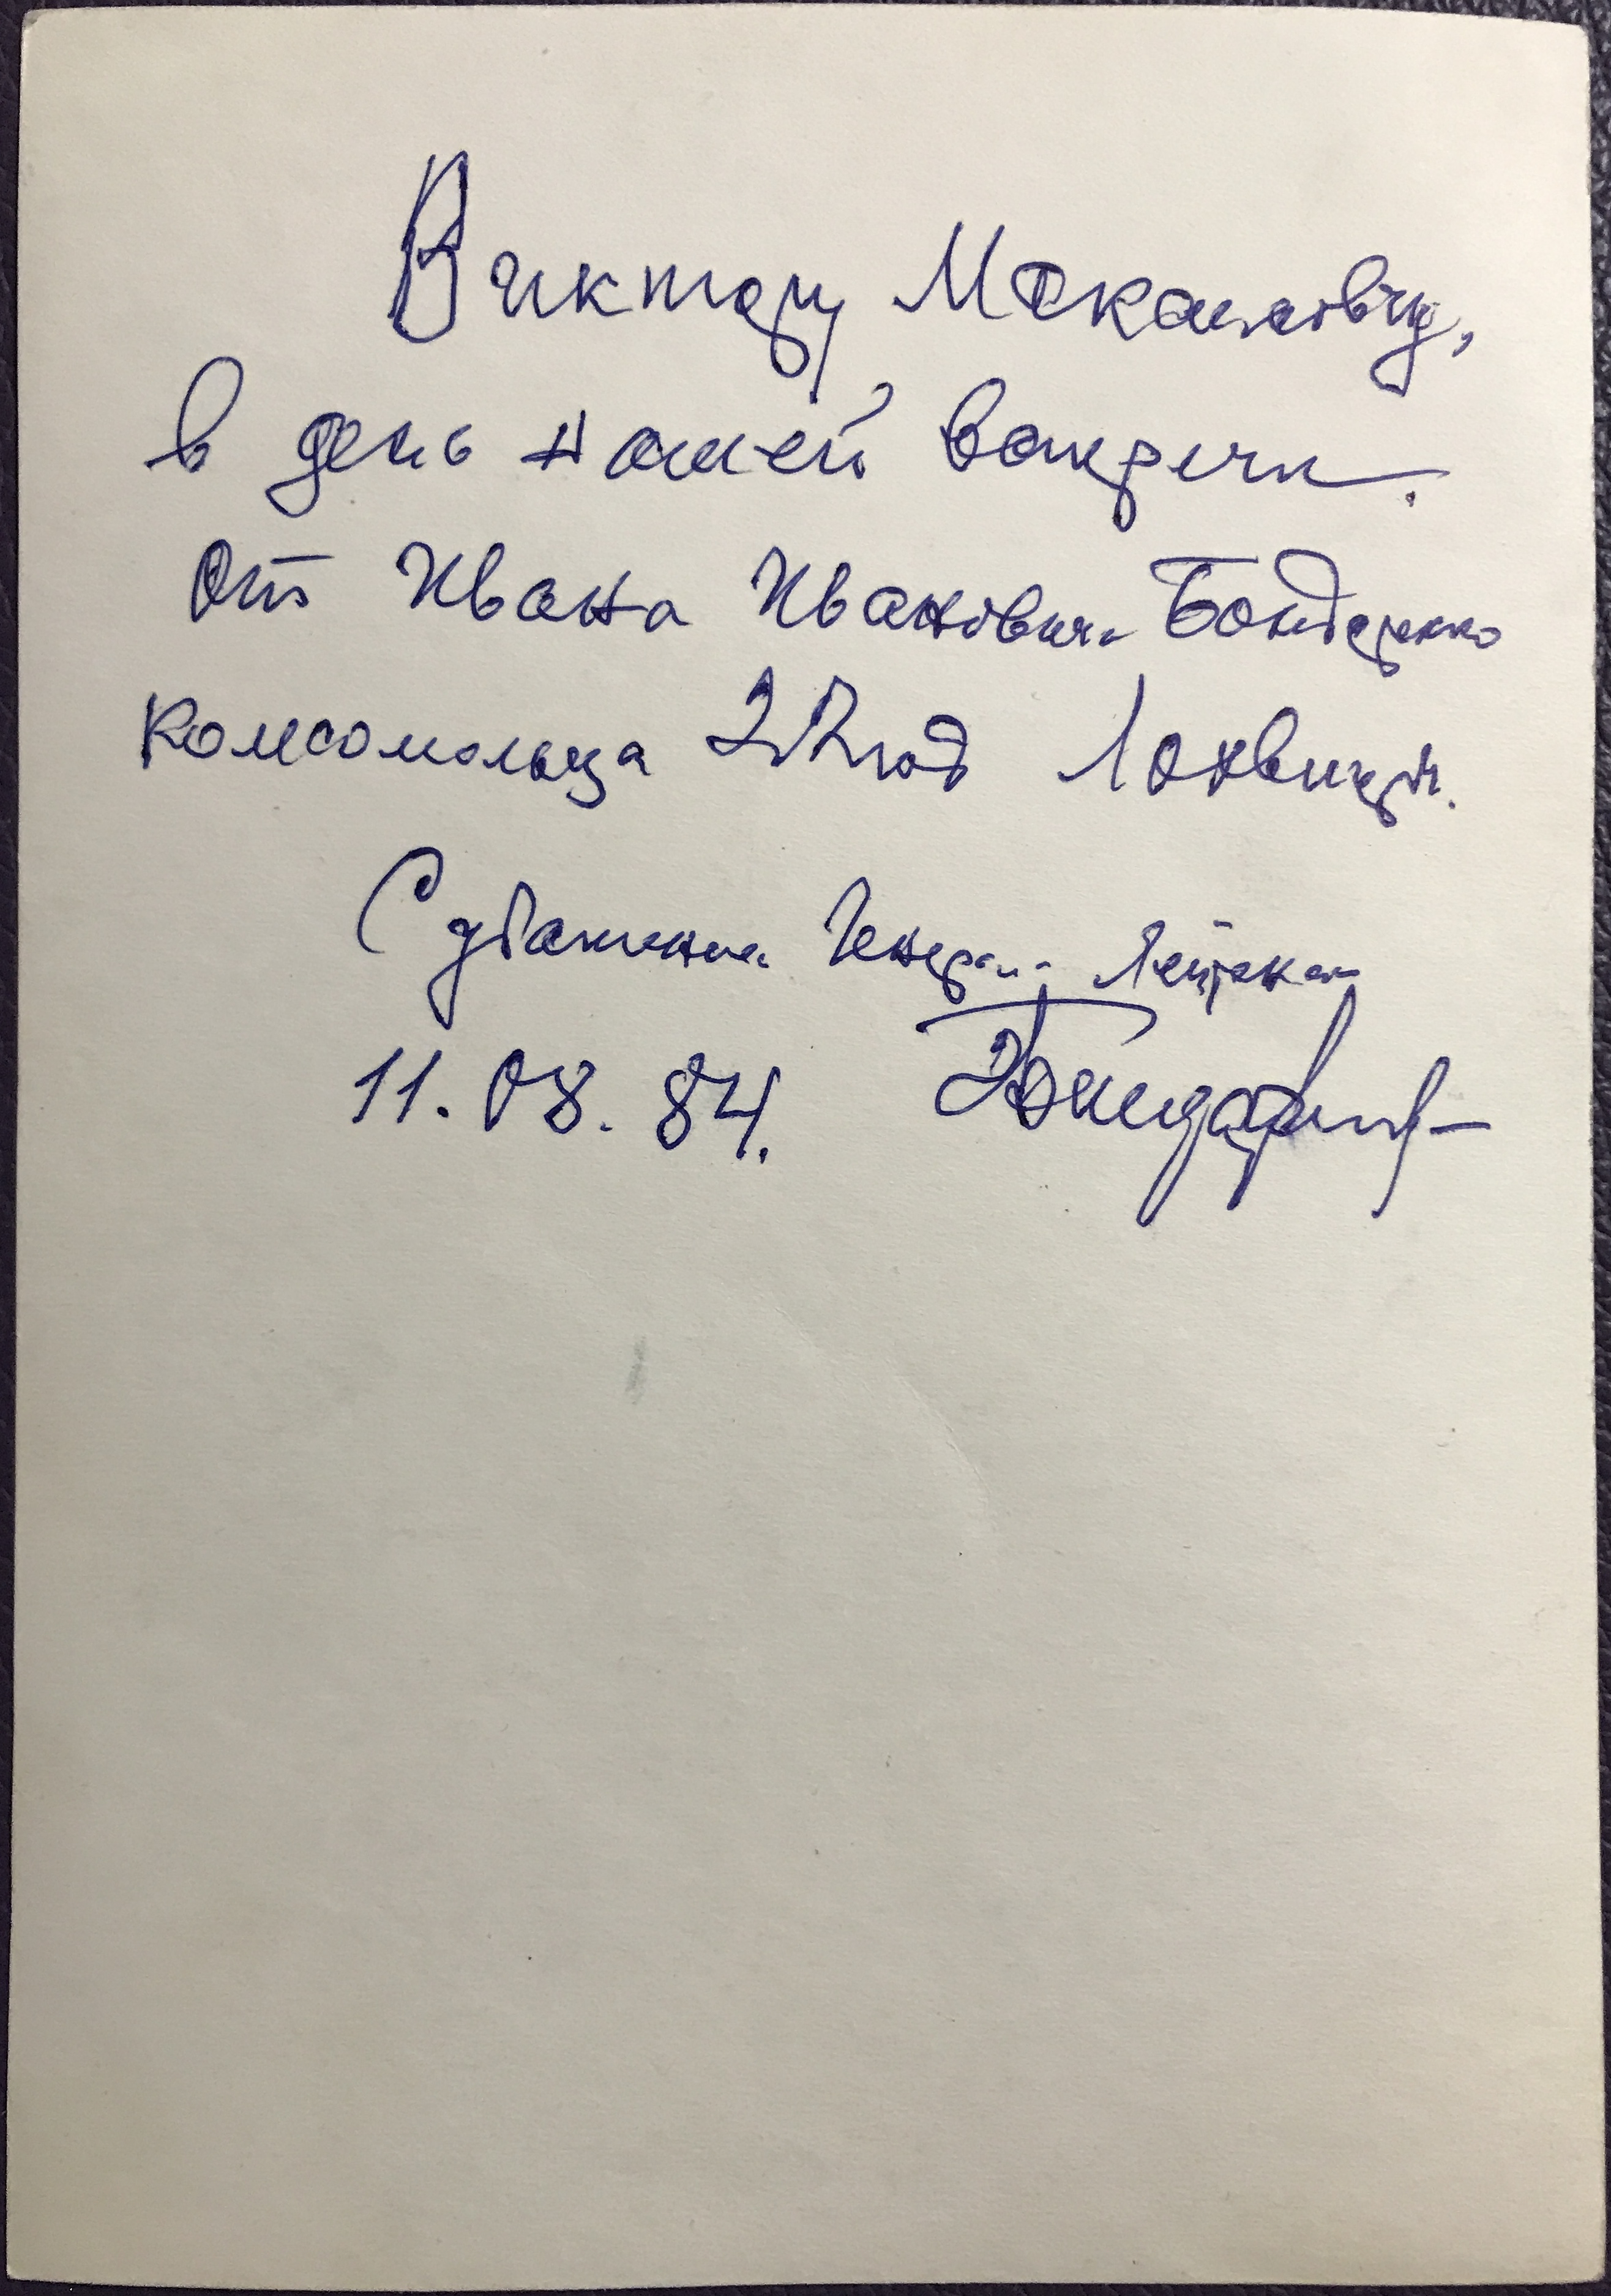 Виктору
в день нашей встречи.
От Ивана Ивановича Бондаренко
комсомольца 22 год
С уважением Генерал Лейтенант
11.08.84.